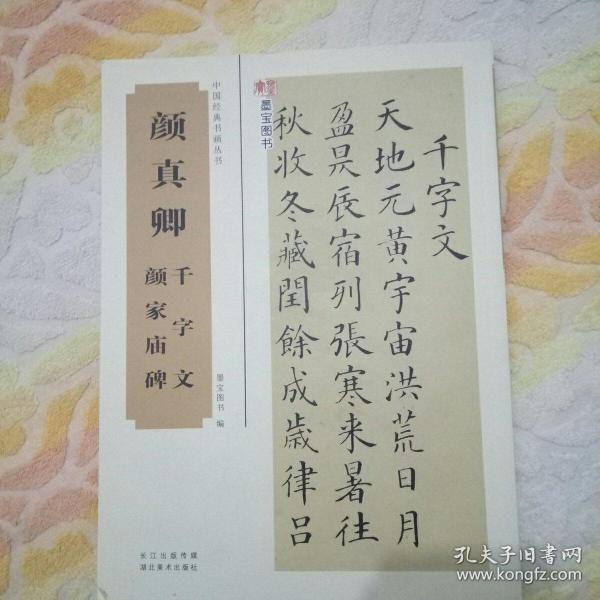 中国经典书画丛书
颜真卿
千字文
颜家庙碑
墨宝图书 编
长江出版传媒
湖北美术出版社
墨宝图书
千字文
天地元黄宇宙洪荒日月
盈昃辰宿列張寒来暑往
秋收冬藏閏餘成歲律吕
孔夫子旧书网
www.kongfz.com